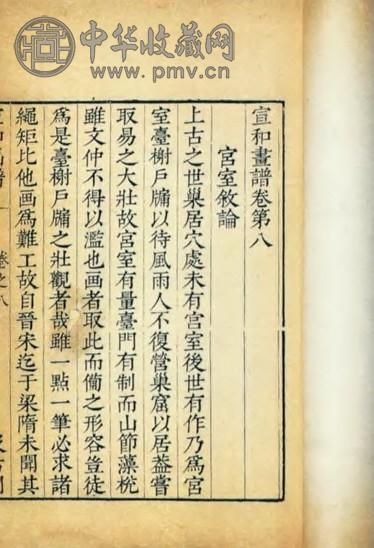 中华收藏网
www.pmv.cn
宣和畫譜卷第八
宮室敘論
上古之世巢居穴處未有宮室後世有作乃爲宮
室臺榭戶牖以待風雨人不復營巢窟以居葢嘗
取易之大壯故宮室有量臺門有制而山節藻梲
雖文仲不得以濫也画者取此而備之形容豈徒
爲是臺榭戶牖之壯觀者哉雖一點一筆必求諸
繩矩比他画爲難工故自晉宋迄于梁隋未聞其
卷之八